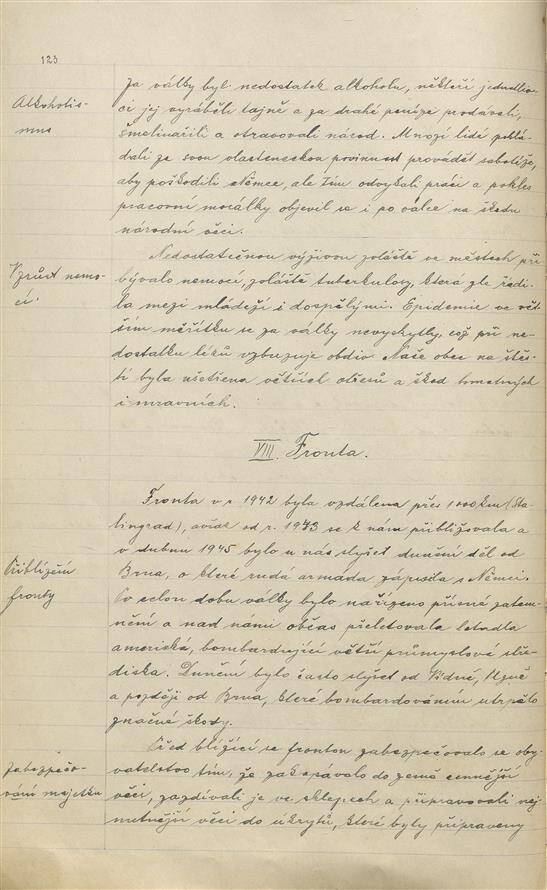 123
Alkoholis-
mus
Za války byl nedostatek alkoholu, někteří jednotliv-
ci jej vyráběli tajně a za drahé peníze prodávali,
šmelinařili a otravovali národ. Mnozí lidé poklá-
dali za svou vlasteneckou povinnost provádět sabotáže,
aby poškodili Němce, ale tím odvykali práci a pokles
pracovní morálky objevil se i po válce na škodu
národní věci.
Vzrůst nemo-
cí.
Nedostatečnou výživou zvláště ve městech při-
bývalo nemocí, zvláště tuberkulosy, která zle řádi-
la mezi mládeží i dospělými. Epidemie ve vět-
ším měřítku se za války nevyskytly, což při ne-
dostatku léků vzbuzuje obdiv. Naše obec na štěs-
tí byla ušetřena větších otřesů a škod hmotných
i mravních.
VIII. Fronta.
Fronta v r. 1942 byla vzdálena přes 1000 km (Sta-
lingrad), avšak od r. 1943 se k nám přibližovala a
v dubnu 1945 bylo u nás slyšet dunění děl od
Přiblížení
fronty
Brna, o které rudá armáda zápasila s Němci.
Po celou dobu války bylo nařízeno přísné zatem-
nění a nad námi občas přeletovala letadla
americká, bombardující větší průmyslové stře-
diska. Dunění bylo často slyšet od Vídně,
a později od Brna, které bombardováním utrpělo
značné škody.
Zabezpečo-
vání majetku
Před blížící se frontou zabezpečovalo se oby-
vatelstvo tím, že zakopávalo do země cennější
věci, zazdívali je ve sklepech a připravovali nej-
nutnější věci do úkrytů, které byly připraveny